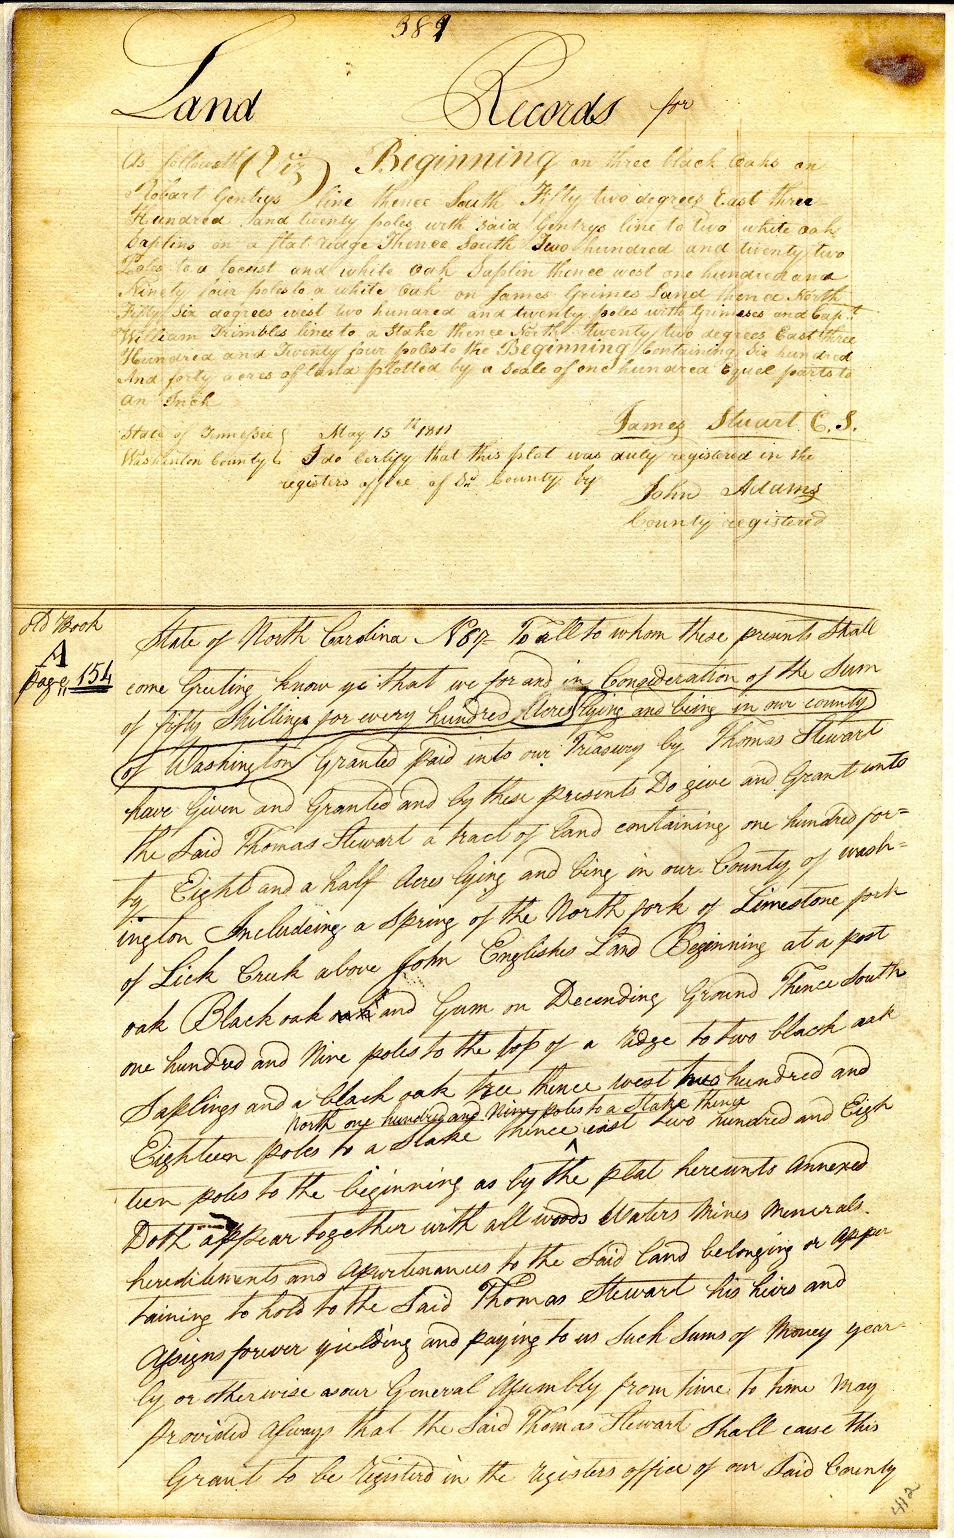 389
Land Records for
As followeth (Viz) Beginning on three black Oaks on
Robart Gentrys line thence South Fifty two degrees East three
Hundred and twenty poles with said Gentrys line to two white oak
Saplins on a flat ridge Thence South Two hundred and twenty two
Poles to a locust and white Oak Saplin thence west one hundred and
Ninety four poles to a white Oak on James Grimes Land thence North
Fifty Six degrees west two hundred and twenty poles with Grimeses and Capt
William Trimbles lines to a Stake thence North twenty two degrees East three
Hundred and Twenty four poles to the Beginning Containing Six hundred
And forty acres of land plotted by a Scale of one hundred Equel parts to
an Inch
James Stuart C. S.
State of Tennessee May 15th 1811
Washinton County I do Certify that this plat was duty registered in the
registers office of Sd County by
John Adams
County registered
Old Book
A
page 154
State of North Carolina No 87 To all to whom these presents Shall
come Greeting know ye that we for and in Consideration of the Sum
of fifty Shillings for every hundred Acres lying and being in our county
of Washington Granted paid into our Treasury by Thomas Stewart
have Given and Granted and by these presents Do give and Grant unto
the Said Thomas Stewart a tract of land containing one hundred for=
ty Eight and a half Acres lying and bing in our County of wash=
ington Includeing a Spring of the North fork of Limestone fork
of Lick Creek above John Englishes Land Beginning at a post
oak Black oak oak and Gum on Decending Ground Thence South
one hundred and Nine poles to the top of a ridge to two black oak
Saplings and a black oak tree thence west two hundred and
North one hundred and Nine poles to a Stake thence
Eighteen poles to a Stake thence ^ east two hundred and Eigh
teen poles to the beginning as by the plat hereunto annexed
Doth appear together with all woods Waters Mines Minerals
herediments and Apurtinances to the Said land belonging or apper
taining to hold to the Said Thomas Stewart his heirs and
Assigns forever yielding and paying to us Such Sums of Money year
ly or otherwise as our General Assembly from time to time May
provided Always that the Said Thomas Stewart Shall cause this
Grant to be registerd in the registers office of our Said County
412